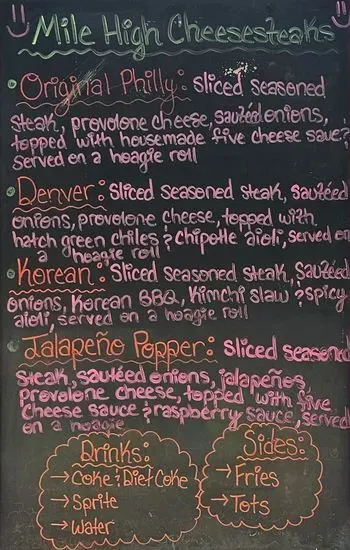 Mile High Cheesesteaks
• Original Philly: Sliced seasoned
steak, provolone cheese, sautéed onions,
topped with housemade five cheese sauce &
served on a hoagie roll
• Denver: Sliced seasoned steak, sautéed
onions, provolone cheese, topped with
hatch green chiles & chipotle aioli, served on
a hoagie roll
• Korean: Sliced seasoned steak, sautéed
onions, Korean BBQ, Kimchi slaw & spicy
aioli, served on a hoagie roll
• Jalapeño Popper: Sliced seasoned
steak, sautéed onions, jalapeños,
provolone cheese, topped with five
cheese sauce & raspberry sauce, served
on a hoagie
Drinks:
→ Coke & Diet Coke
→ Sprite
→ Water
Sides:
→ Fries
→ Tots